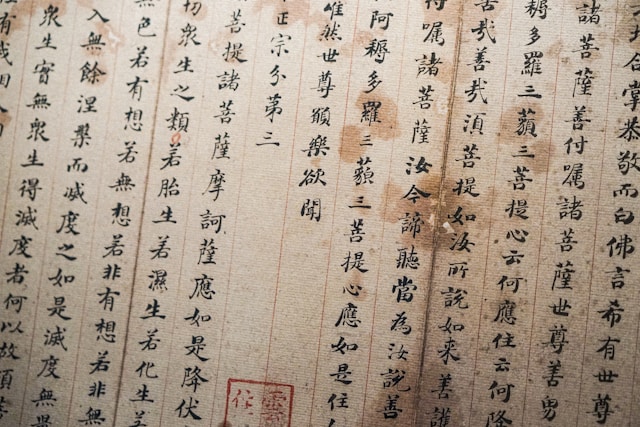 合掌恭敬而白佛言希有世尊
諸菩薩善付囑諸菩薩世尊善男
耨多羅三藐三菩提心云何應住云何降
哉善哉湏菩提如汝所說如來善護
付囑諸菩薩汝今諦聽當為汝說善
阿耨多羅三藐三菩提心應如是住
唯然世尊願樂欲聞
正宗分第三
菩提諸菩薩摩訶薩應如是降伏
切眾生之類若胎生若濕生若化生若
無色若有想若無想若非有想若非無
入無餘涅槃而滅度之如是滅度無量
眾生實無眾生得滅度者何以故須菩
有我相人